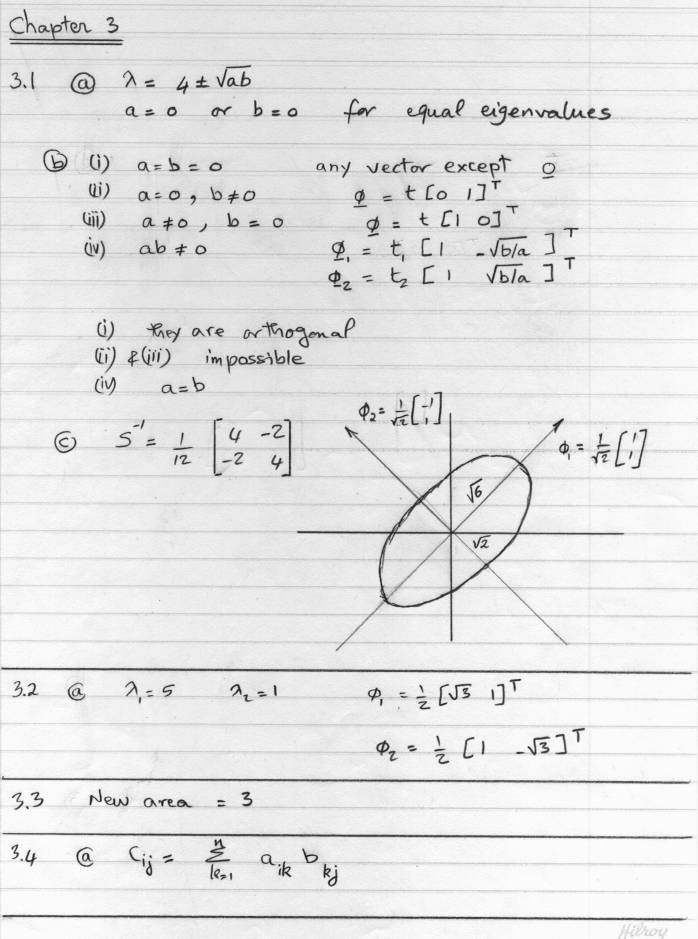 Chapter 3
3.1 ⓐ λ = 4 ± √ab
a = 0 or b = 0 for equal eigenvalues
ⓑ (i) a = b = 0 any vector except 0
(ii) a = 0 , b ≠ 0 ϕ = t [0 1]ᵀ
(iii) a ≠ 0 , b = 0 ϕ = t [1 0]ᵀ
(iv) ab ≠ 0 ϕ₁ = t₁ [1 -√b/a ]ᵀ
ϕ₂ = t₂ [1 √b/a ]ᵀ
(i) they are orthogonal
(ii) & (iii) impossible
(iv) a = b
ⓒ S⁻¹ = 1/12 [4 -2; -2 4]
ϕ₂ = 1/√2 [-1; 1]
ϕ₁ = 1/√2 [1; 1]
√6
√2
3.2 ⓐ λ₁ = 5 λ₂ = 1 ϕ₁ = 1/2 [√3 1]ᵀ
ϕ₂ = 1/2 [1 -√3]ᵀ
3.3 New area = 3
3.4 ⓐ Cᵢⱼ = Σₖ₌₁ⁿ aᵢₖ bₖⱼ
Hilroy